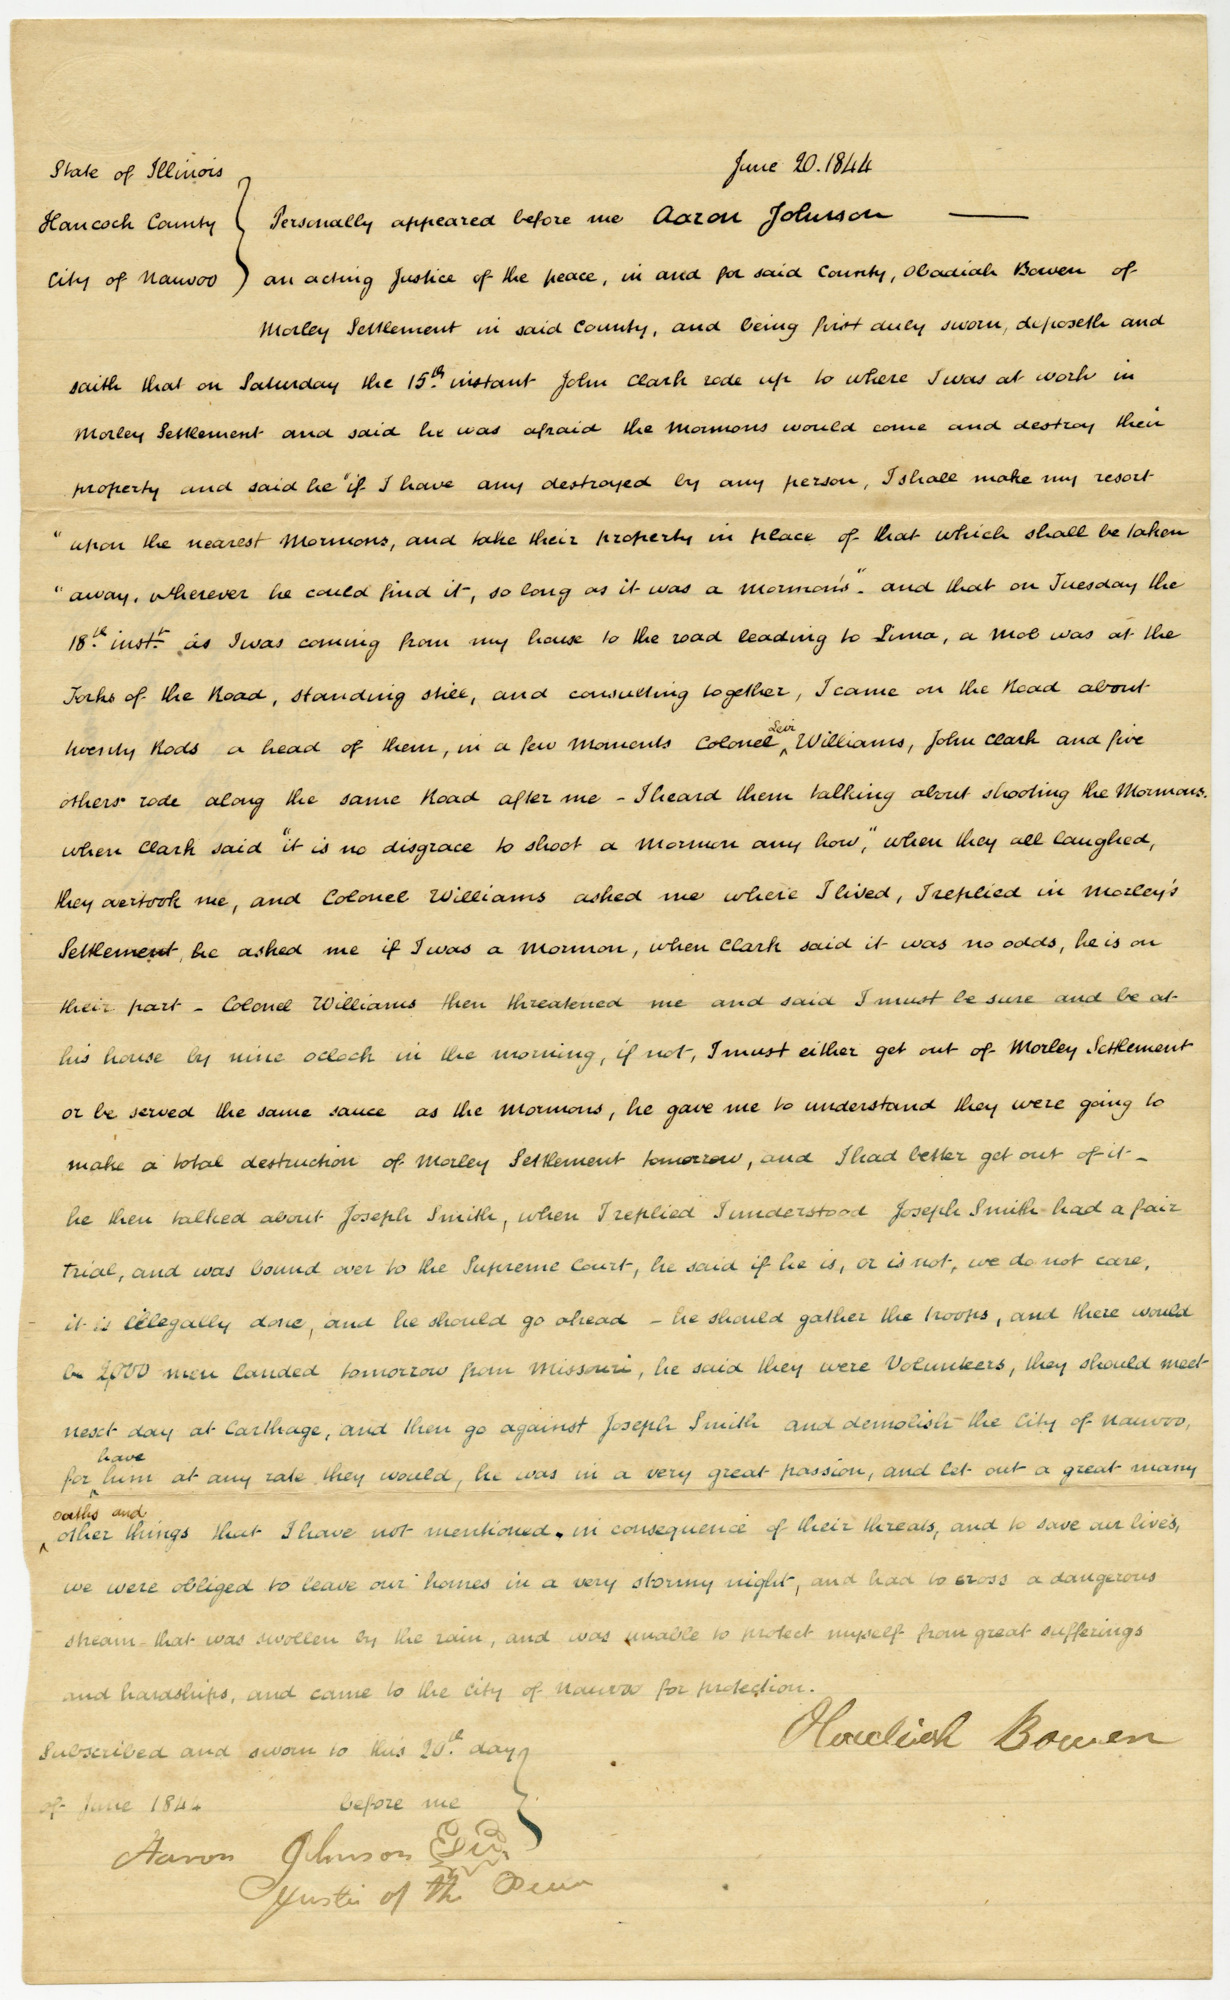 June 20. 1844
State of Illinois
Hancock County } Personally appeared before me Aaron Johnson —
City of Nauvoo ) an acting Justice of the peace, in and for said County, Obadiah Bowen of
Morley Settlement in said County, and being first duly sworn, deposeth and
saith that on Saturday the 15th. instant John Clark rode up to where I was at work in
Morley Settlement and said he was afraid the Mormons would come and destroy their
property and said he "if I have any destroyed by any person, I shall make my resort
"upon the nearest Mormons, and take their property in place of that which shall be taken
"away, wherever he could find it, so long as it was a Mormon's". and that on Tuesday the
18th. inst.t as I was coming from my house to the road leading to Lima, a Mob was at the
Forks of the Road, standing still, and consulting together, I came on the Road about
twenty Rods a head of them, in a few Moments Colonel ^Levi Williams, John Clark and five
others rode along the same Road after me - I heard them talking about shooting the Mormons.
when Clark said "it is no disgrace to shoot a Mormon any how", when they all laughed,
they overtook me, and Colonel Williams asked me where I lived, I replied in Morley's
Settlement, he asked me if I was a Mormon, when Clark said it was no odds, he is on
their part - Colonel Williams then threatened me and said I must be sure and be at
his house by nine oclock in the morning, if not, I must either get out of Morley Settlement
or be served the same sauce as the Mormons, he gave me to understand they were going to
make a total destruction of Morley Settlement tomorrow, and I had better get out of it -
he then talked about Joseph Smith, when I replied I understood Joseph Smith had a fair
trial, and was bound over to the Supreme Court, he said if he is, or is not, we do not care,
it is illegally done, and he should go ahead - he should gather the troops, and there would
be 2,000 men landed tomorrow from Missouri, he said they were Volunteers, they should meet
next day at Carthage, and then go against Joseph Smith and demolish the City of Nauvoo,
for ^have him at any rate they would, he was in a very great passion, and let out a great many
^oaths and other things that I have not mentioned. in consequence of their threats, and to save our lives,
we were obliged to leave our homes in a very stormy night, and had to cross a dangerous
stream that was swollen by the rain, and was unable to protect myself from great sufferings
and hardships, and came to the City of Nauvoo for protection.
Obadiah Bowen
Subscribed and sworn to this 20th. day }
of June 1844 before me
Aaron Johnson Esqr
Justis of the Peace